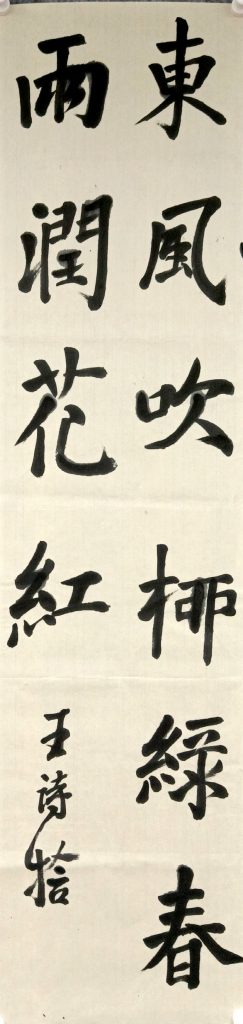 東風吹柳綠春
雨潤花紅
王詩拾